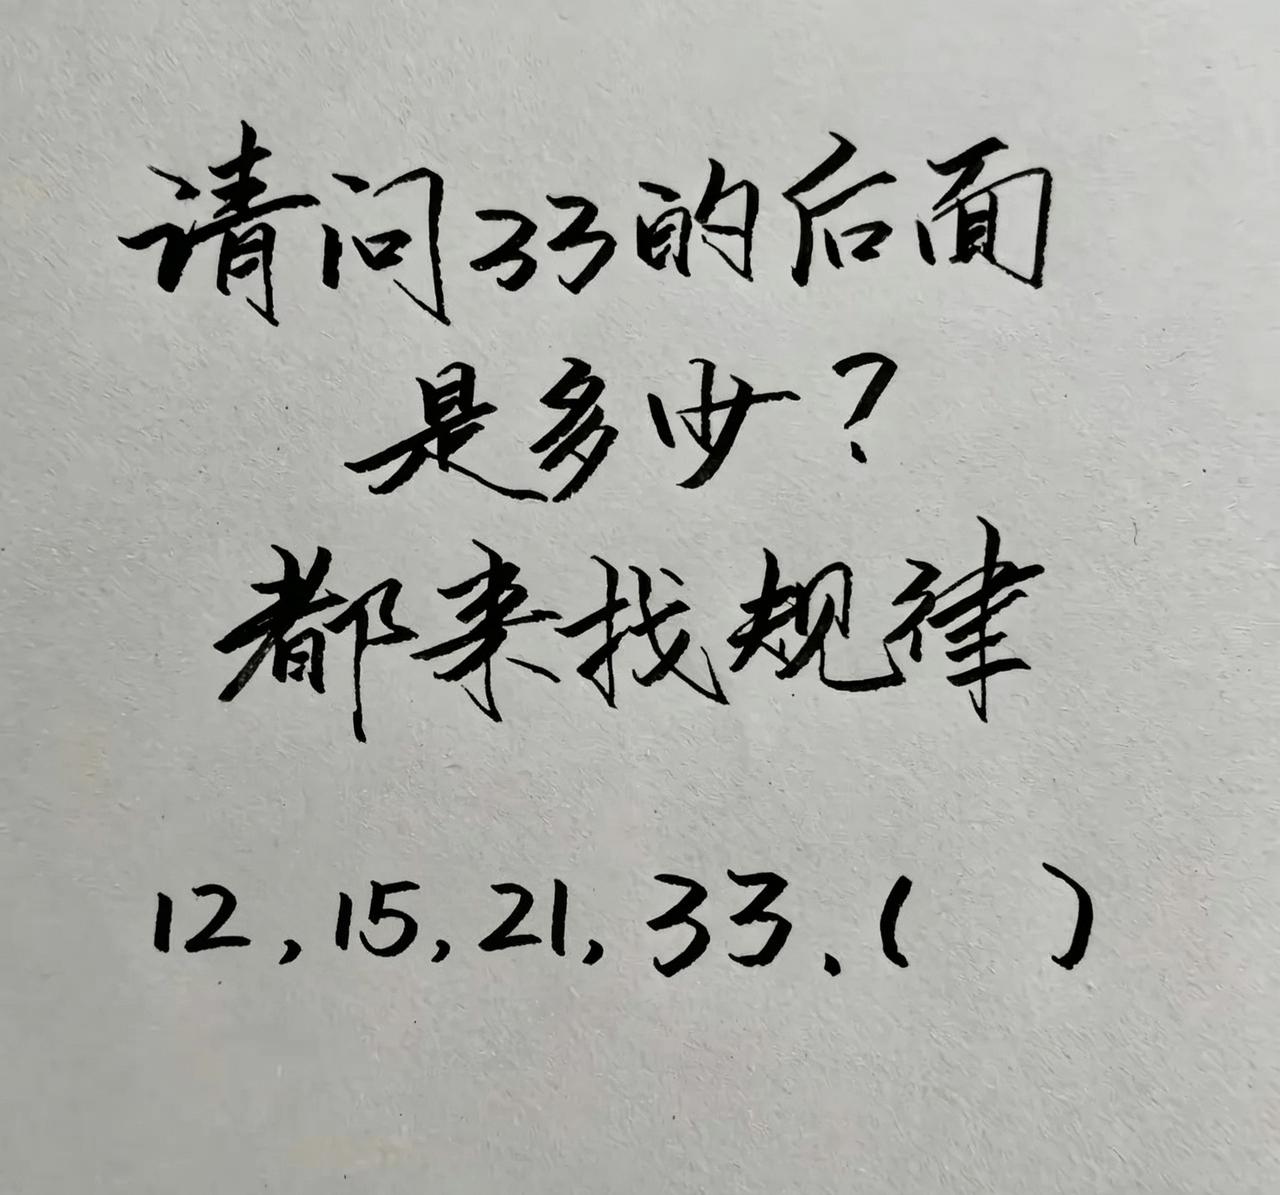 请问33的后面
是多少？
都来找规律
12，15，21，33、（  ）